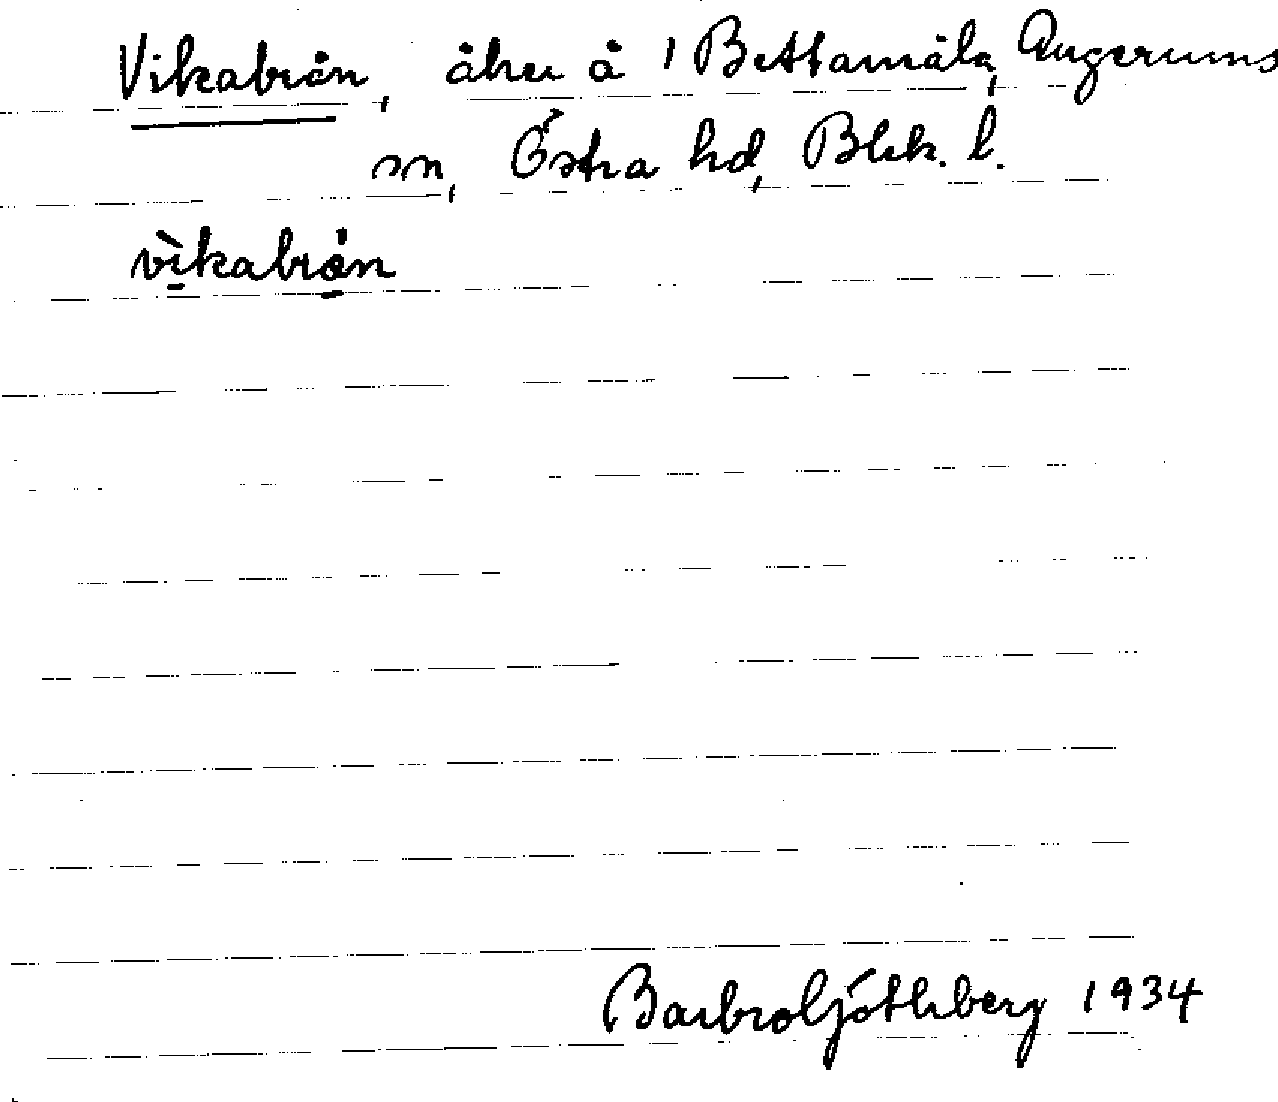 Vikabrån, åker å 1 Bettamåla, Augerums
sn, Östra hd, Blek. l.
vìkabrå̀n
Barbro Götlberg 1934